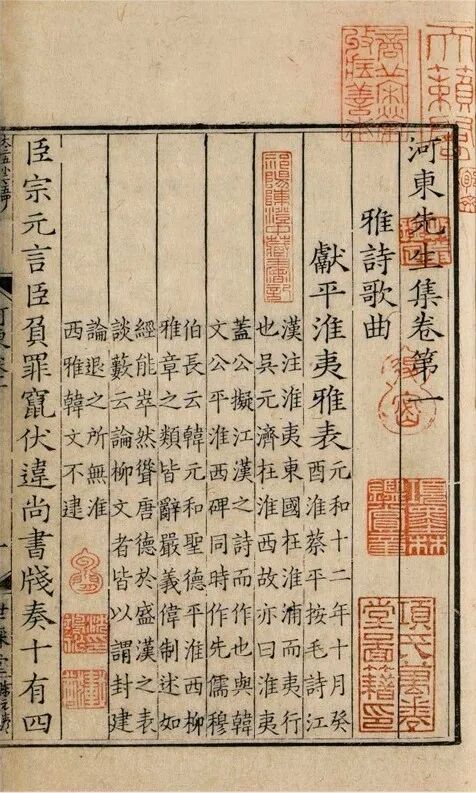 河東先生集卷第一
雅詩歌曲
獻平淮夷雅表
元和十二年十月癸
酉淮蔡平按毛詩江
漢注淮夷東國在淮浦而夷行
也吳元濟在淮西故亦曰淮夷
蓋公擬江漢之詩而作也與韓
文公平淮西碑同時作先儒穆
伯長云韓元和聖德平淮西柳
雅章之類皆辭嚴義偉制述如
經能崒然聳唐德於盛漢之表
談藪云論柳文者皆以謂封建
論退之所無淮
西雅韓文不逮
臣宗元言臣負罪竄伏違尚書牋奏十有四
祁陽陳澄中藏書記
項墨林鑑賞章
項氏萬卷堂圖籍印